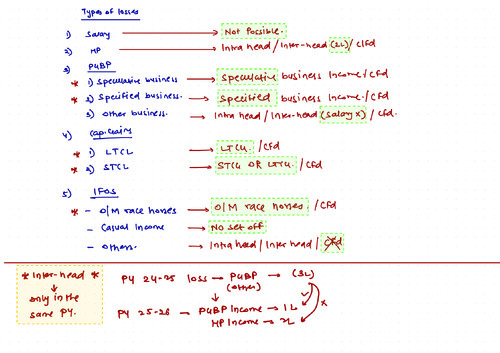 Types of losses
1) Salary → Not Possible.
2) HP → Intra head / Inter-head (2L) / Cfd
3) PGBP
* 1) Speculative business → Speculative business Income / Cfd
* 2) Specified business. → Specified business Income / Cfd
3) Other business → Intra head / Inter-head (Salary X) / Cfd.
4) Cap. Gains
* 1) LTCL → LTCG. / Cfd
* 2) STCL → STCG OR LTCG. / Cfd
5) IFOS
* - O/M race horses → O/M race horses / Cfd
- Casual Income → No set off
- Others. → Intra head / Inter head / Cfd
* Inter-head *
↓
only in the
same PY.
PY 24-25 loss → PGBP → (3L)
(Other)
↓
PY 25-26 → PGBP Income → 1L
HP Income → 2L
✓ x